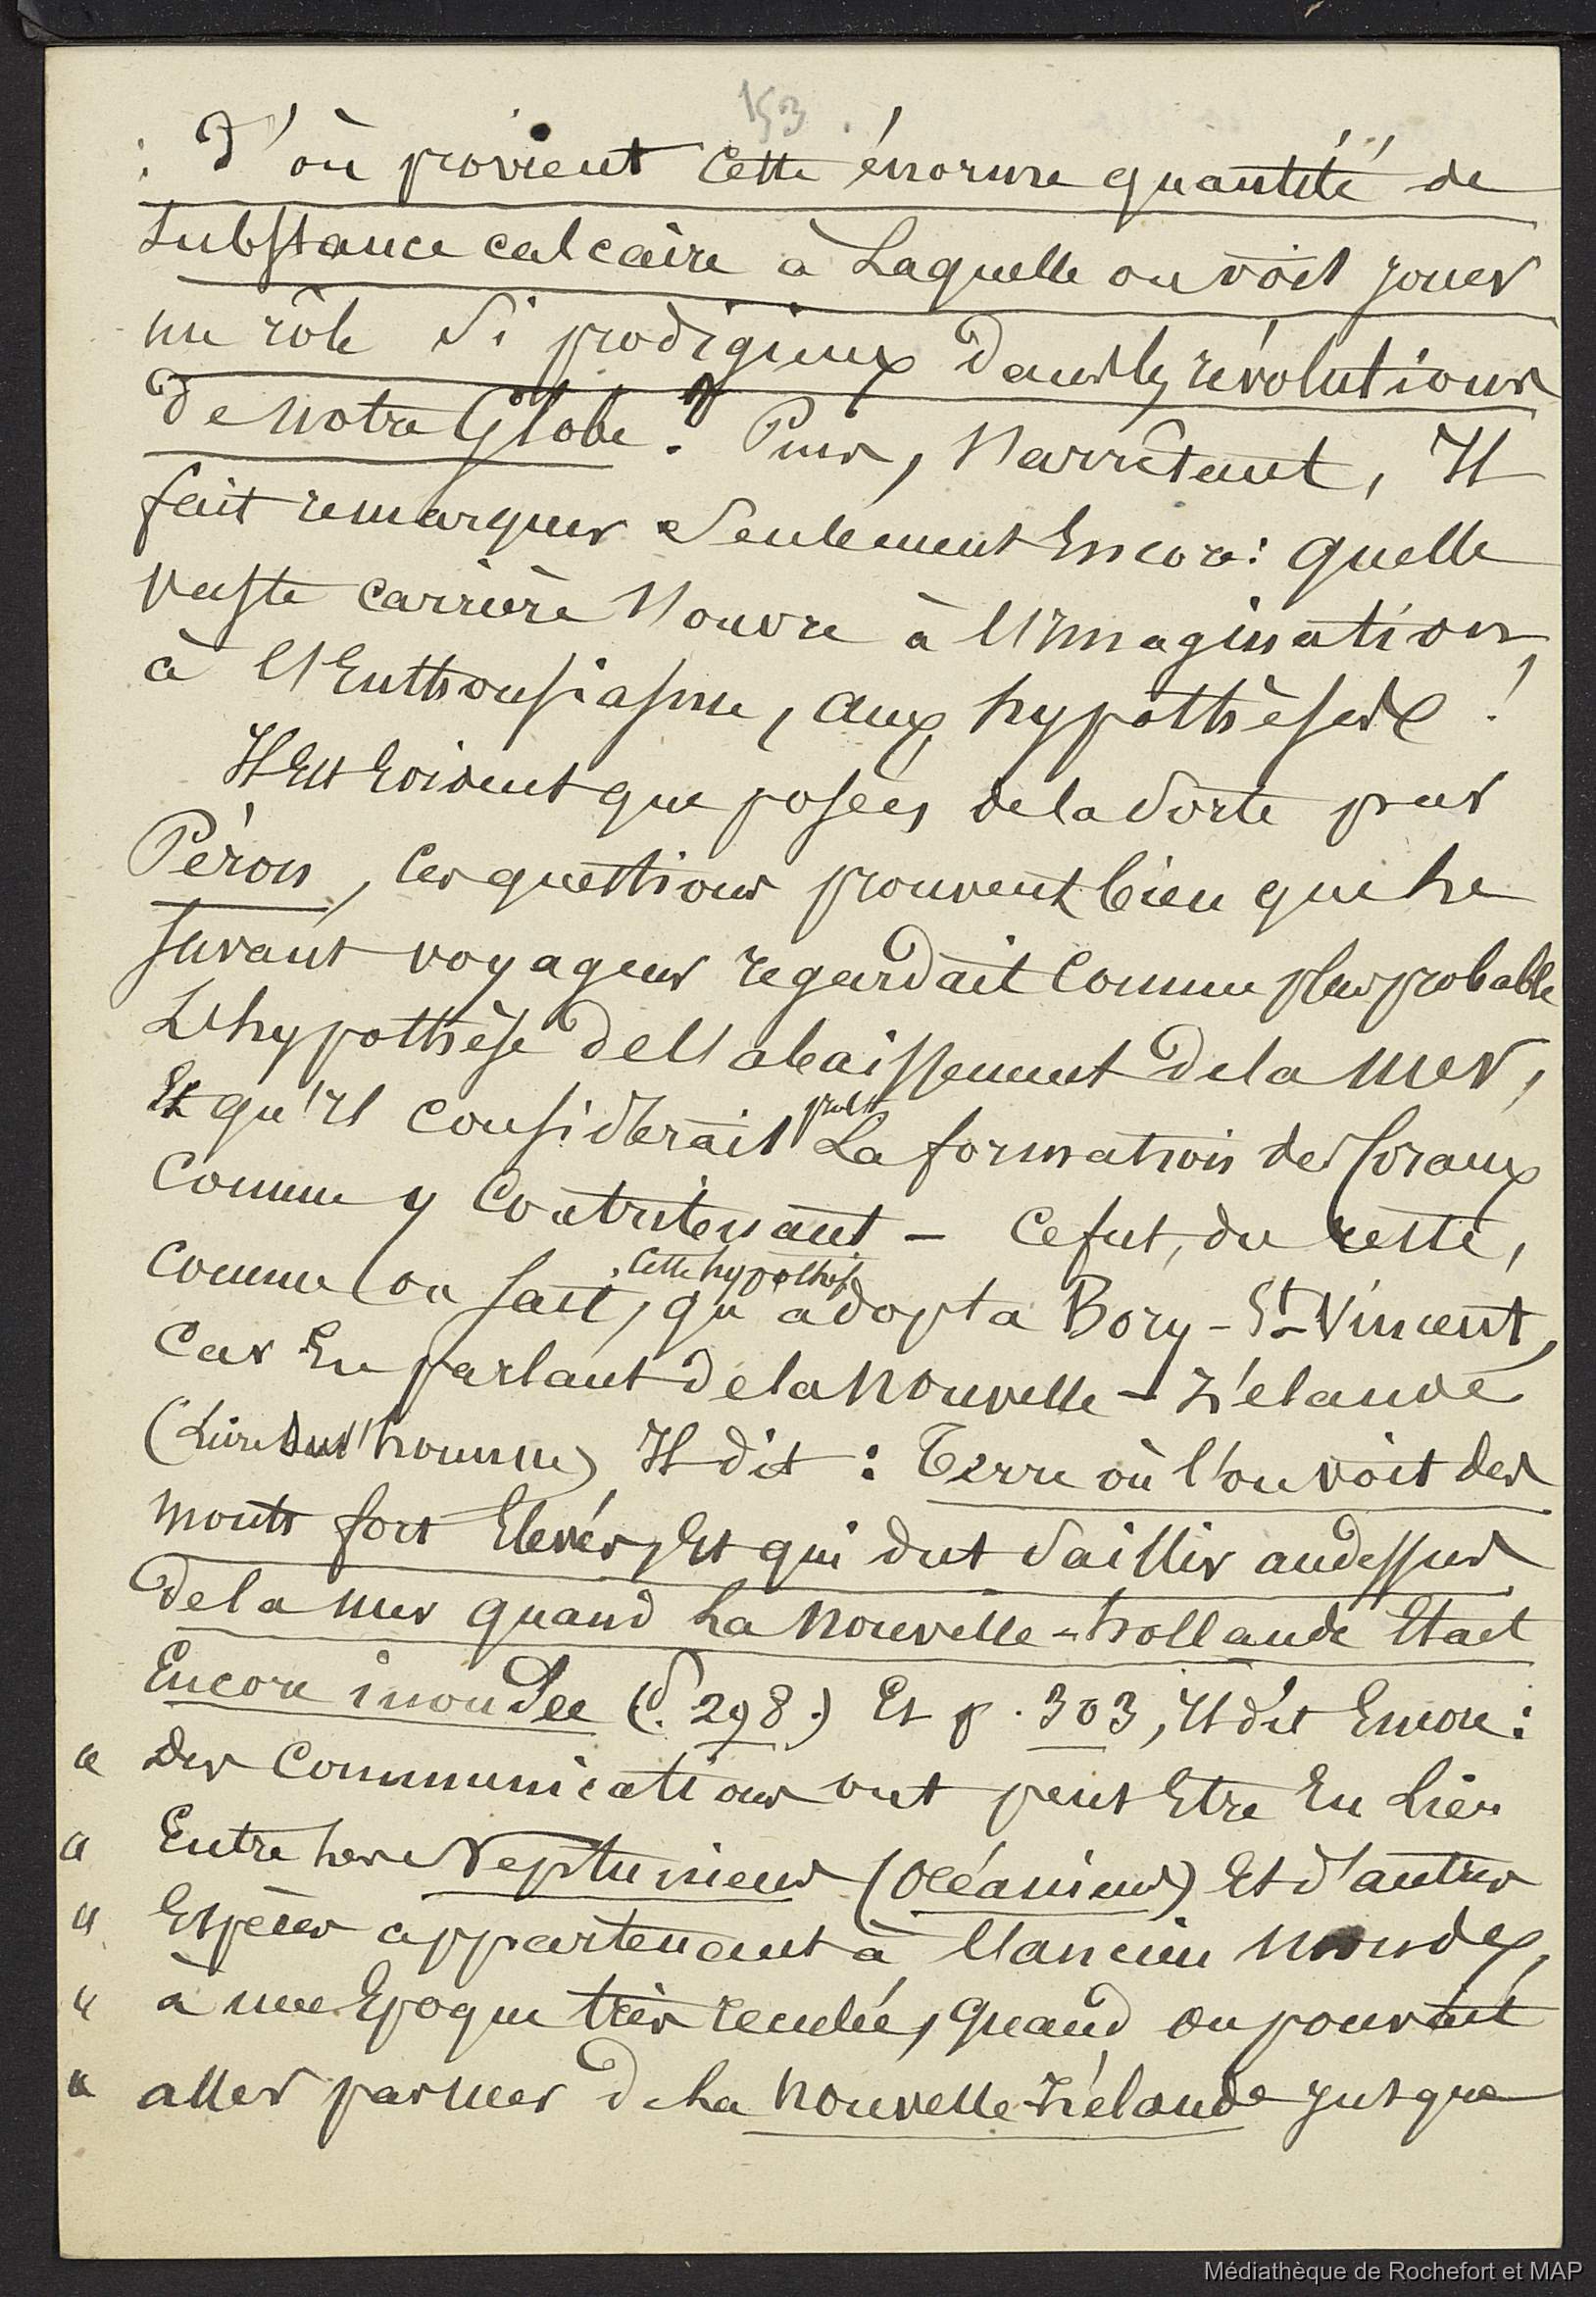 153
: D'où provient cette énorme quantité de
substance calcaire à laquelle on voit jouer
un rôle si prodigieux dans les révolutions
de notre Globe ? Puis, s'arrêtant, Il
fait remarquer seulement Encore : quelle
vaste carrière s'ouvre à l'Imagination,
à l'Enthousiasme, aux hypothèses !
Il Est Evident que posées de la sorte par
Péron, ces questions prouvent bien que le
savant voyageur regardait comme plus probable
L'hypothèse de l'abaissement de la mer,
Et qu'il considérait La formation des Coraux
comme y contribuant — Ce fut, du reste,
cette hypothèse
comme on sait, qu'adopta Bory-St-Vincent,
Car En parlant de la Nouvelle-Zélande
(Livre sur l'homme) Il dit : Terre où l'on voit des
monts fort Elevés, Et qui dut saillir au dessus
de la mer quand La Nouvelle-hollande Etait
Encore inondée (P. 298.) Et p. 303, Il dit Encore :
« Des Communications ont peut Etre Eu Lieu
« Entre les Neptuniens (Océaniens) Et d'autres
« Espèces appartenant à l'ancien monde,
« à une Epoque très reculée, quand on pouvait
« aller par mer de La Nouvelle-Zélande jusque
Médiathèque de Rochefort et MAP